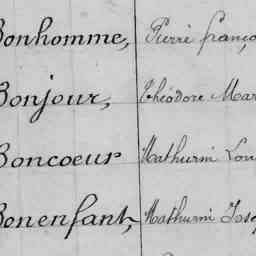 Bonhomme, Pierre franço
Bonjour, Théodore Mar
Boncoeur Mathurin Lou
Bonenfant, Mathurin Jose